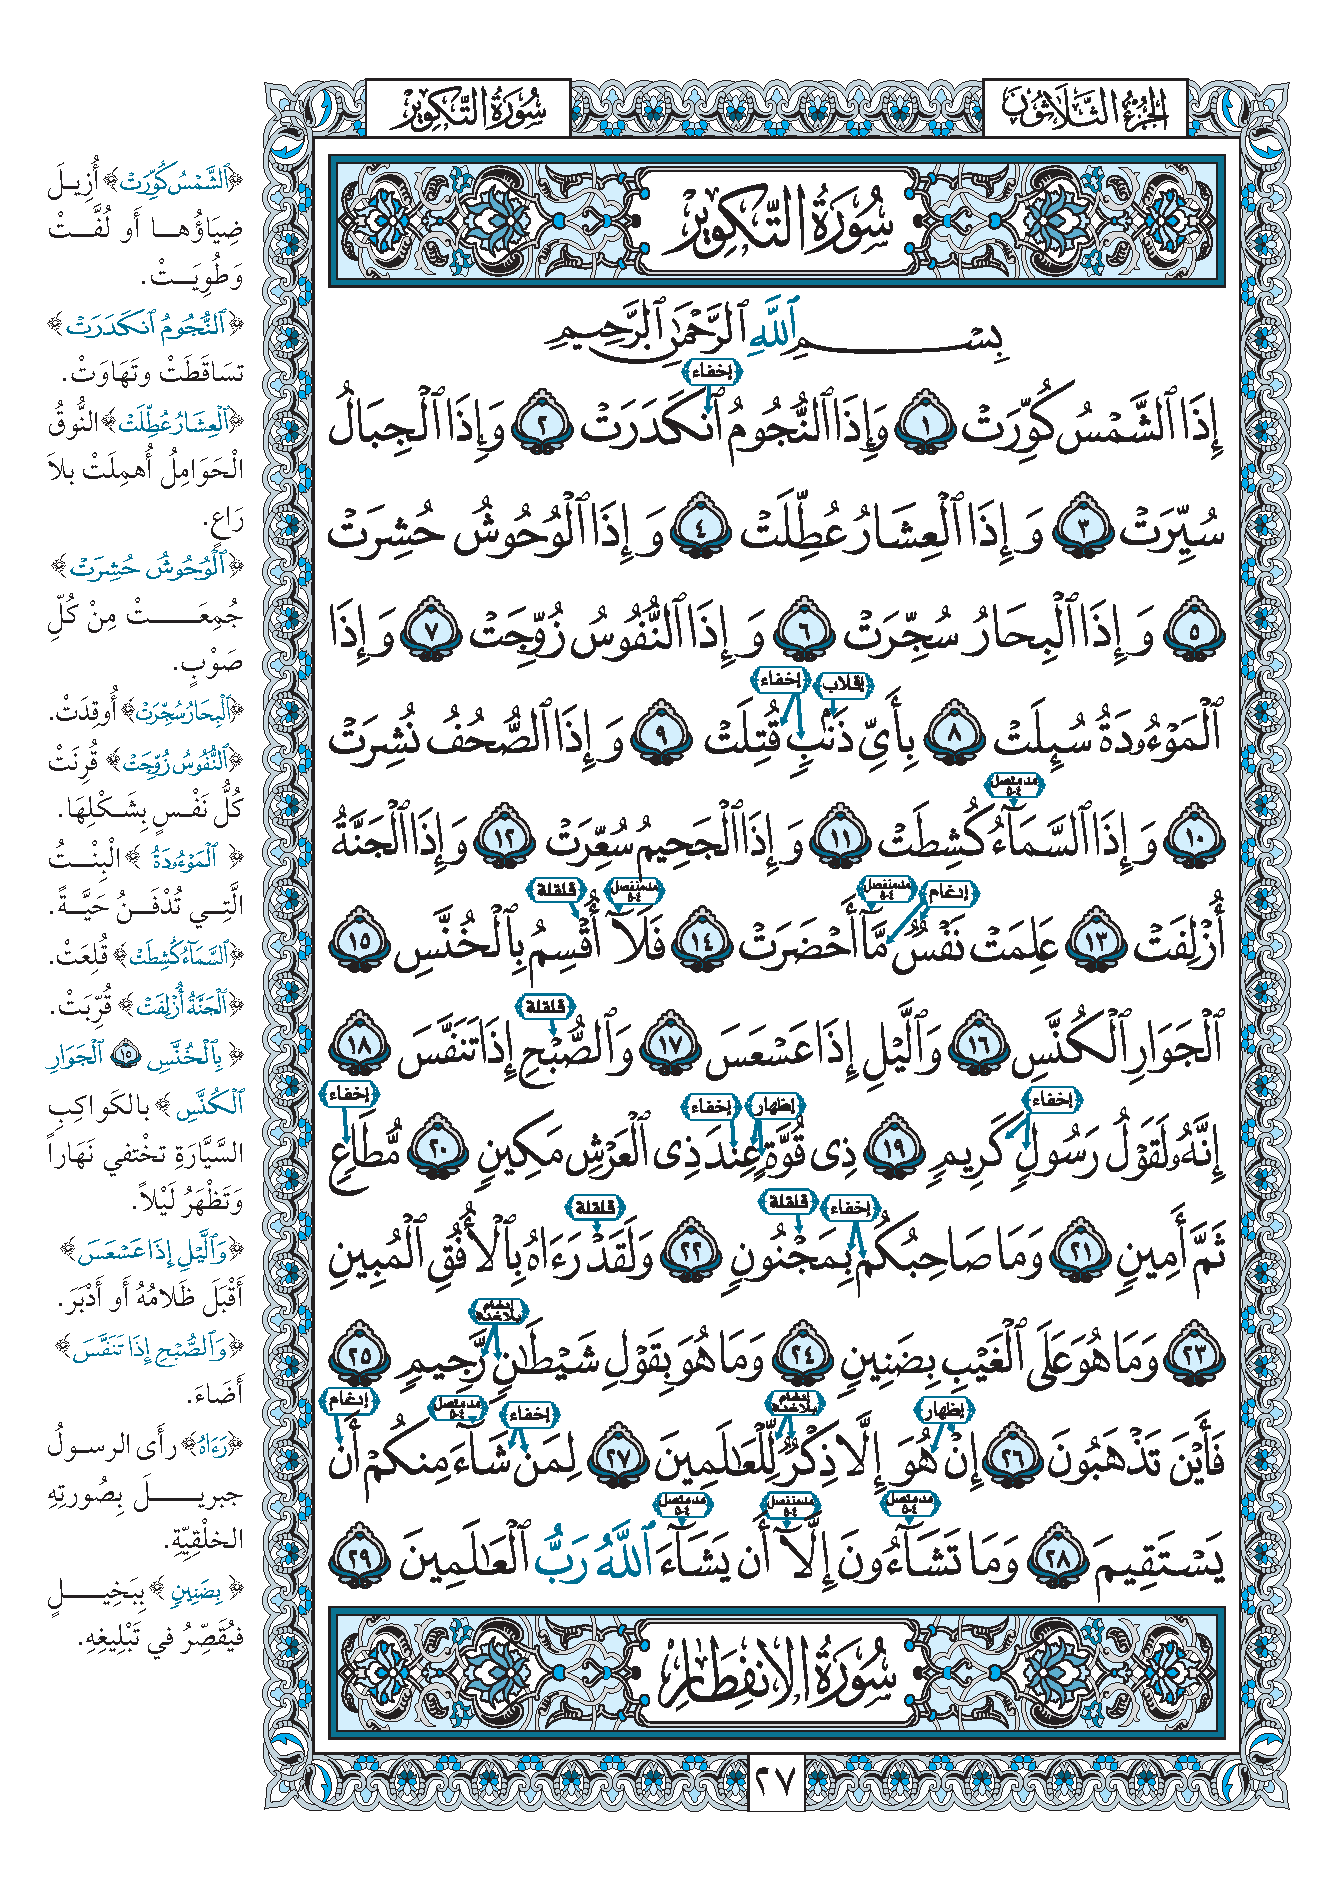 الجُزْءُ الثَّلَاثُونَ
سُورَةُ التَّكْوِيرِ
سُورَةُ التَّكْوِيرِ
بِسْمِ ٱللَّهِ ٱلرَّحْمَٰنِ ٱلرَّحِيمِ
إخفاء
إِذَا ٱلشَّمْسُ كُوِّرَتْ ١ وَإِذَا ٱلنُّجُومُ ٱنكَدَرَتْ ٢ وَإِذَا ٱلْجِبَالُ
سُيِّرَتْ ٣ وَإِذَا ٱلْعِشَارُ عُطِّلَتْ ٤ وَإِذَا ٱلْوُحُوشُ حُشِرَتْ
٥ وَإِذَا ٱلْبِحَارُ سُجِّرَتْ ٦ وَإِذَا ٱلنُّفُوسُ زُوِّجَتْ ٧ وَإِذَا
إقلاب إخفاء
ٱلْمَوْءُۥدَةُ سُئِلَتْ ٨ بِأَىِّ ذَنۢبٍ قُتِلَتْ ٩ وَإِذَا ٱلصُّحُفُ نُشِرَتْ
مد متصل ٤-٥
١٠ وَإِذَا ٱلسَّمَآءُ كُشِطَتْ ١١ وَإِذَا ٱلْجَحِيمُ سُعِّرَتْ ١٢ وَإِذَا ٱلْجَنَّةُ
إدغام مد منفصل ٤-٥ مد منفصل ٤-٥ قلقلة
أُزْلِفَتْ ١٣ عَلِمَتْ نَفْسٌ مَّآ أَحْضَرَتْ ١٤ فَلَآ أُقْسِمُ بِٱلْخُنَّسِ ١٥
قلقلة
ٱلْجَوَارِ ٱلْكُنَّسِ ١٦ وَٱلَّيْلِ إِذَا عَسْعَسَ ١٧ وَٱلصُّبْحِ إِذَا تَنَفَّسَ ١٨
إخفاء إظهار إخفاء إخفاء
إِنَّهُۥ لَقَوْلُ رَسُولٍ كَرِيمٍ ١٩ ذِى قُوَّةٍ عِندَ ذِى ٱلْعَرْشِ مَكِينٍ ٢٠ مُّطَاعٍ
إخفاء قلقلة قلقلة
ثَمَّ أَمِينٍ ٢١ وَمَا صَاحِبُكُم بِمَجْنُونٍ ٢٢ وَلَقَدْ رَءَاهُ بِٱلْأُفُقِ ٱلْمُبِينِ
إدغام بلا غنة
٢٣ وَمَا هُوَ عَلَى ٱلْغَيْبِ بِضَنِينٍ ٢٤ وَمَا هُوَ بِقَوْلِ شَيْطَٰنٍ رَّجِيمٍ ٢٥
إظهار إدغام بلا غنة إخفاء مد متصل ٤-٥ إدغام
فَأَيْنَ تَذْهَبُونَ ٢٦ إِنْ هُوَ إِلَّا ذِكْرٌ لِّلْعَٰلَمِينَ ٢٧ لِمَن شَآءَ مِنكُمْ أَن
مد متصل ٤-٥ مد منفصل ٤-٥ مد متصل ٤-٥
يَسْتَقِيمَ ٢٨ وَمَا تَشَآءُونَ إِلَّآ أَن يَشَآءَ ٱللَّهُ رَبُّ ٱلْعَٰلَمِينَ ٢٩
سُورَةُ الانفِطَارِ
٢٧
﴿ٱلشَّمْسُ كُوِّرَتْ﴾ أُزِيلَ
ضِيَاؤُها أَو لُفَّتْ
وَطُوِيَتْ.
﴿ٱلنُّجُومُ ٱنكَدَرَتْ﴾
تسَاقَطَتْ وتَهَاوَتْ.
﴿ٱلْعِشَارُ عُطِّلَتْ﴾ النُّوقُ
الْحَوَامِلُ أُهمِلَتْ بلاَ
رَاعٍ.
﴿ٱلْوُحُوشُ حُشِرَتْ﴾
جُمِعَتْ مِنْ كُلِّ
صَوْبٍ.
﴿ٱلْبِحَارُ سُجِّرَتْ﴾ أُوقِدَتْ.
﴿ٱلنُّفُوسُ زُوِّجَتْ﴾ قُرِنَتْ
كُلُّ نَفْسٍ بِشَكْلِهَا.
﴿ٱلْمَوْءُۥدَةُ﴾ الْبِنْتُ
الَّتِي تُدْفَنُ حَيَّةً.
﴿ٱلسَّمَآءُ كُشِطَتْ﴾ قُلِعَتْ.
﴿ٱلْجَنَّةُ أُزْلِفَتْ﴾ قُرِّبَتْ.
﴿بِٱلْخُنَّسِ ١٥ ٱلْجَوَارِ
ٱلْكُنَّسِ﴾ بالكَواكِبِ
السَّيَّارَةِ تخْتفي نَهَاراً
وَتَظْهَرُ لَيْلاً.
﴿وَٱلَّيْلِ إِذَا عَسْعَسَ﴾
أَقْبَلَ ظَلامُهُ أَو أَدْبَرَ.
﴿وَٱلصُّبْحِ إِذَا تَنَفَّسَ﴾
أَضَاءَ.
﴿رَءَاهُ﴾ رأَى الرسولُ
جبريلَ بِصُورتِهِ
الخلْقِيَّةِ.
﴿بِضَنِينٍ﴾ بِبَخِيلٍ
فيُقَصِّرُ في تَبْلِيغِهِ.